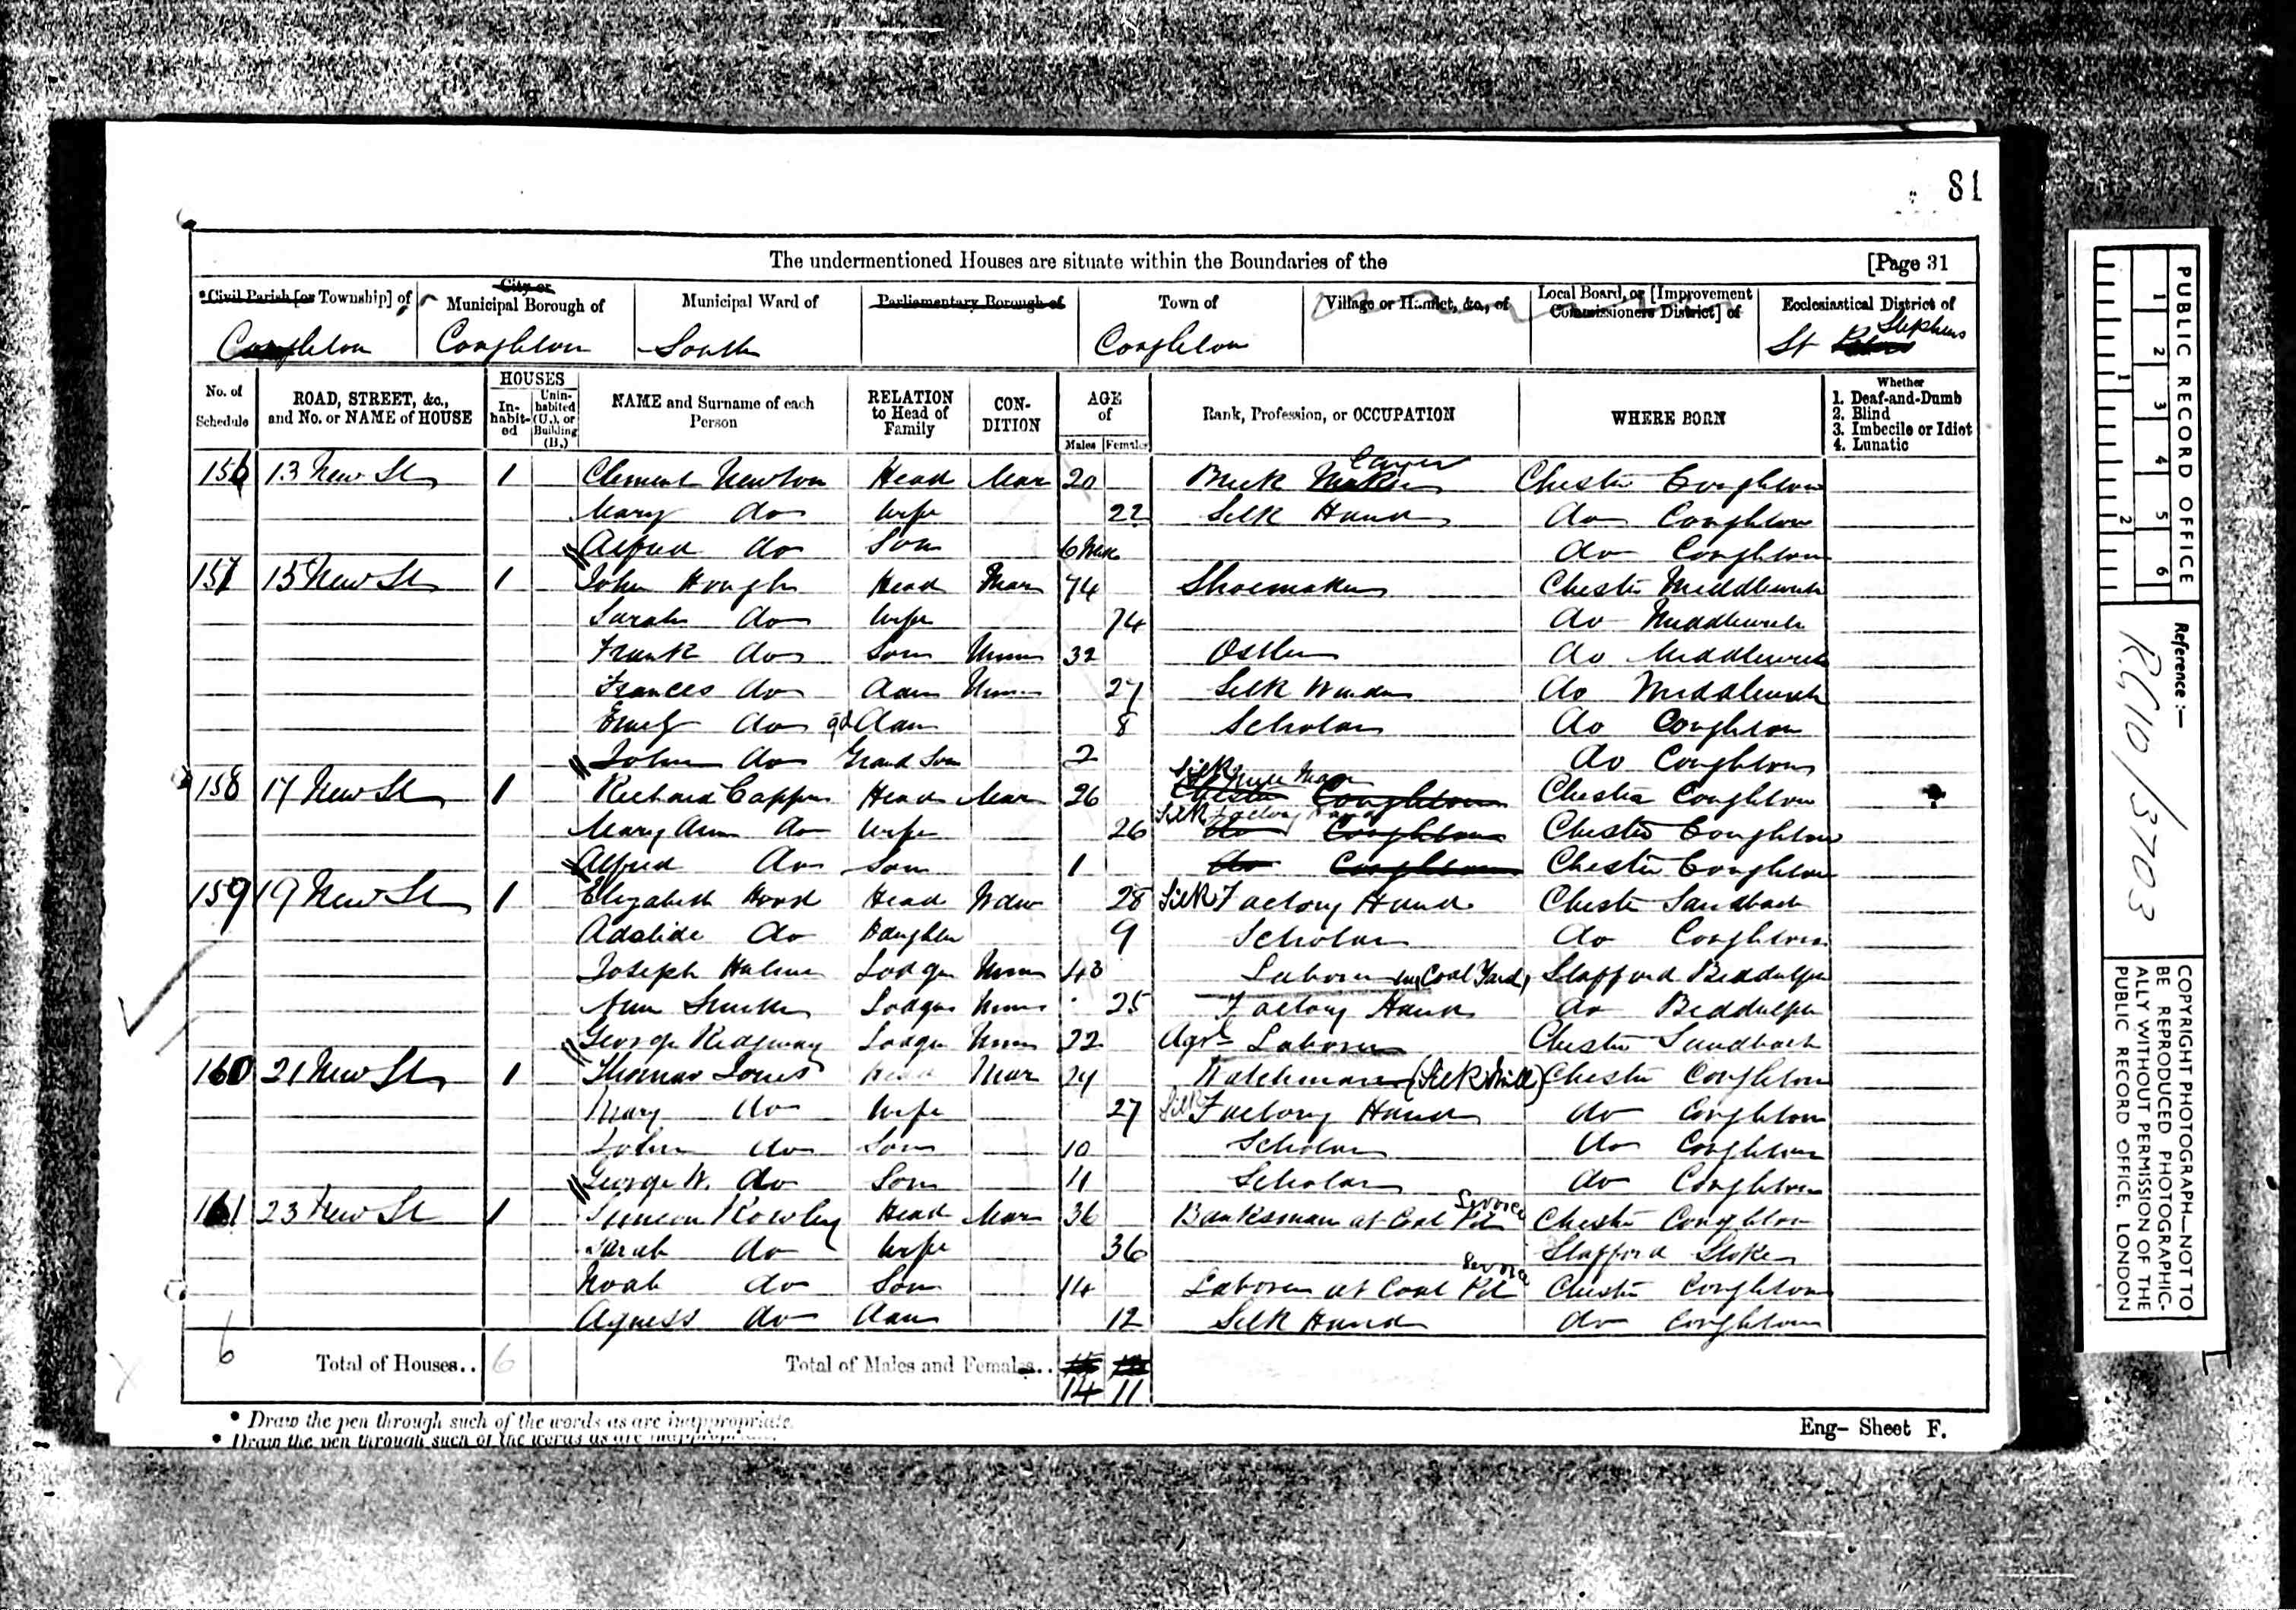 81
The undermentioned Houses are situate within the Boundaries of the [Page 31
*Civil Parish [or Township] of
City or Municipal Borough of
Municipal Ward of
Parliamentary Borough of
Town of
Village or Hamlet, &c., of
Local Board, or [Improvement Commissioners District] of
Ecclesiastical District of
Congleton Congleton South Congleton St Stephens
No. of Schedule
ROAD, STREET, &c., and No. or NAME of HOUSE
HOUSES
Inhabited
Uninhabited (U.), or Building (B.)
NAME and Surname of each Person
RELATION to Head of Family
CONDITION
AGE of
Males Females
Rank, Profession, or OCCUPATION
WHERE BORN
Whether
1. Deaf-and-Dumb
2. Blind
3. Imbecile or Idiot
4. Lunatic
156 13 New St 1 Clement Newton Head Mar 20 Brick Maker Chester Congleton
Mary do Wife 22 Silk Hand do Congleton
Alfred do Son 6 do Congleton
157 15 New St 1 John Hough Head Mar 74 Shoemaker Chester Middlewich
Sarah do Wife 74 do Middlewich
Frank do Son Unm 32 Ostler do Middlewich
Frances do Daur Unm 27 Silk Winder do Middlewich
Emily do gd Daur 8 Scholar do Congleton
John do Grand Son 2 do Congleton
158 17 New St 1 Richard Capper Head Mar 26 Silk Mill Man Chester Congleton Chester Congleton
Mary Ann do Wife 26 Silk Factory Hand do Congleton Chester Congleton
Alfred do Son 1 do Congleton Chester Congleton
159 19 New St 1 Elizabeth Hood Head Wdw 28 Silk Factory Hand Chester Sandbach
Adelide do Daughter 9 Scholar do Congleton
Joseph Lodger Unm 43 Laborer in Coal Yard Stafford Biddulph
Ann Lodger Unm 25 Factory Hand do Biddulph
George Ridgway Lodger Unm 22 Agrl Laborer Chester Sandbach
160 21 New St 1 Thomas Jones Head Mar 29 Watchman (Silk Mill) Chester Congleton
Mary do Wife 27 Silk Factory Hand do Congleton
John do Son 10 Scholar do Congleton
George W. do Son 11 Scholar do Congleton
161 23 New St 1 Simeon Rowley Head Mar 36 Banksman at Coal Pit Chester Congleton
Sarah do Wife 36 Stafford Stoke
Noah do Son 14 Laborer at Coal Pit Chester Congleton
Agness do Daur 12 Silk Hand do Congleton
6 Total of Houses.. 6 Total of Males and Females..
14 11
* Draw the pen through such of the words as are inappropriate.
* Draw the pen through such of the words as are inappropriate.
Eng- Sheet F.
PUBLIC RECORD OFFICE
1 2 3 4 5 6
1 2
Reference :-
RG 10/3703
COPYRIGHT PHOTOGRAPH—NOT TO
BE REPRODUCED PHOTOGRAPHIC-
ALLY WITHOUT PERMISSION OF THE
PUBLIC RECORD OFFICE, LONDON